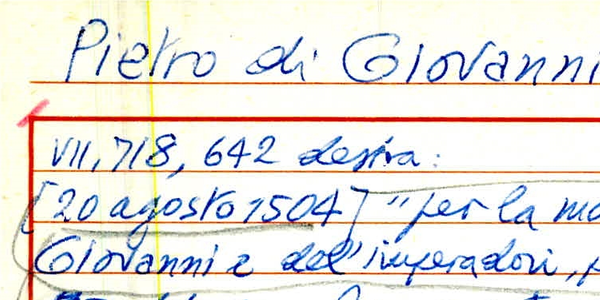 Pietro di Giovanni
VII, 718, 642 destra:
[20 agosto 1504] "per la
Giovanni e dell'imperadori,